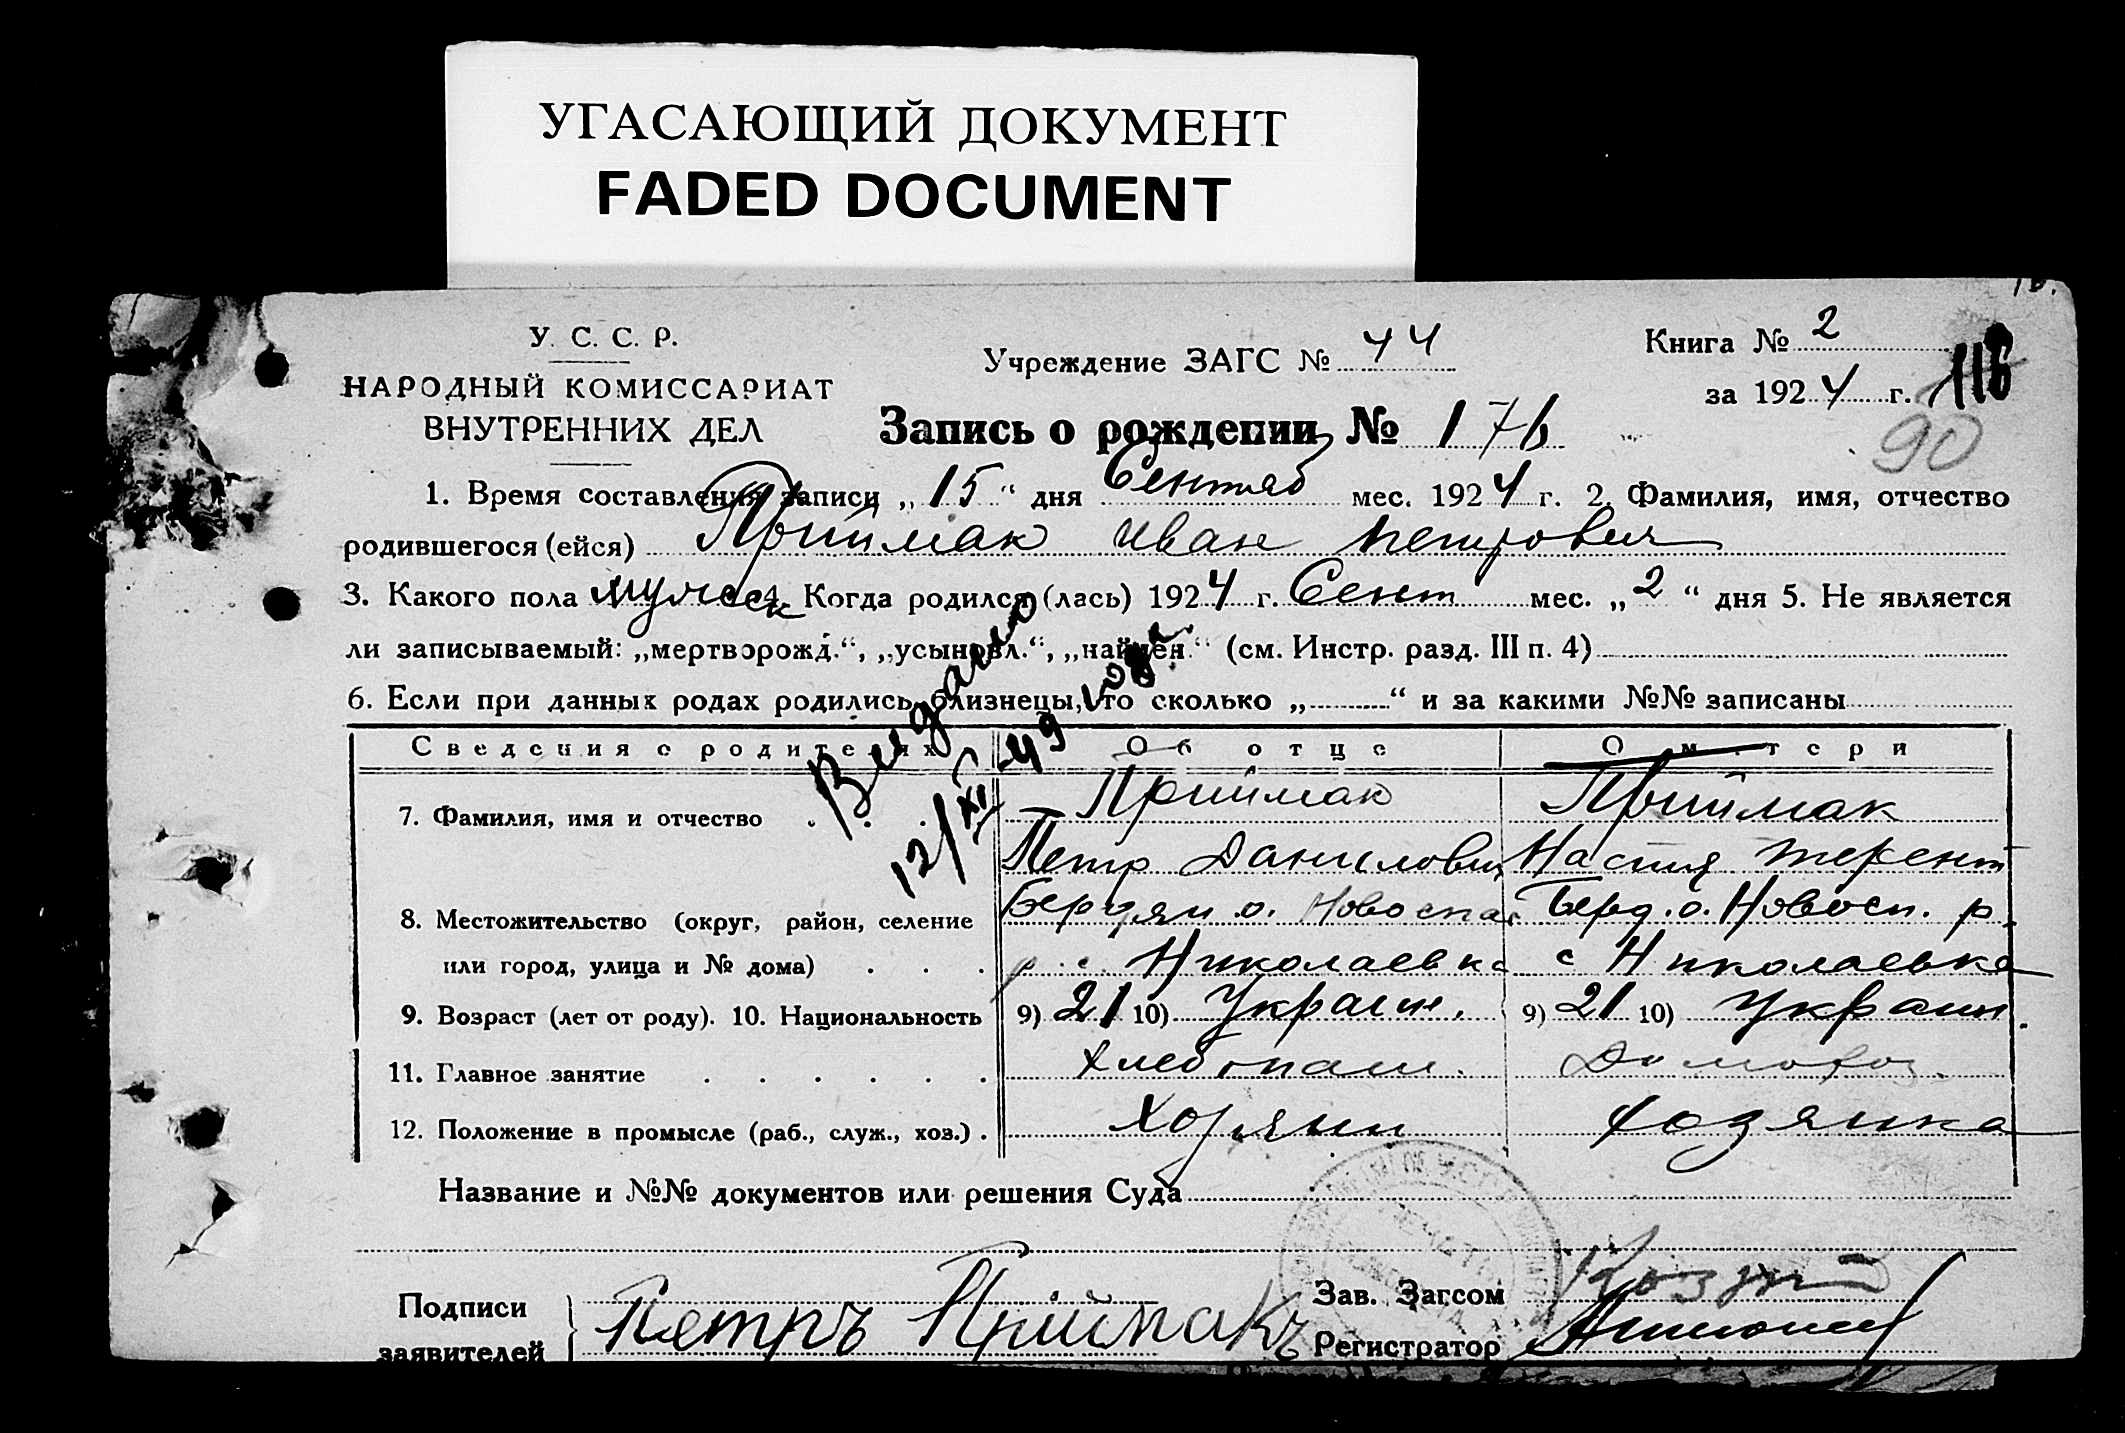 УГАСАЮЩИЙ ДОКУМЕНТ
FADED DOCUMENT
У. С. С. Р.
НАРОДНЫЙ КОМИССАРИАТ
ВНУТРЕННИХ ДЕЛ
Учреждение ЗАГС № 44
Книга № 2
за 1924 г. 116
90
Запись о рождении № 176
1. Время составления записи „15“ дня Сентяб мес. 1924 г. 2. Фамилия, имя, отчество
родившегося (ейся) Приймак Иван Петрович
3. Какого пола мужск 4. Когда родился (лась) 1924 г. Сент мес. „2“ дня 5. Не является
ли записываемый: „мертворожд.“, „усыновл.“, „найден.“ (см. Инстр. разд. III п. 4)
6. Если при данных родах родились близнецы, то сколько „ “ и за какими №№ записаны
Выдано
12/XII-49 года
Сведения о родителях Об отце О матери
7. Фамилия, имя и отчество Приймак Приймак
Петр Данилович Настя Терент
8. Местожительство (округ, район, селение Бердян о. Новоспас Берд. о. Новосп. р.
или город, улица и № дома) р. с. Николаевка с Николаевка
9. Возраст (лет от роду). 10. Национальность 9) 21 10) Украин. 9) 21 10) Украин.
11. Главное занятие Хлебопаш. Домохоз.
12. Положение в промысле (раб., служ., хоз.) Хозяин Хозяйка
Название и №№ документов или решения Суда
Подписи
заявителей Петръ Приймакъ
Зав. Загсом
Регистратор